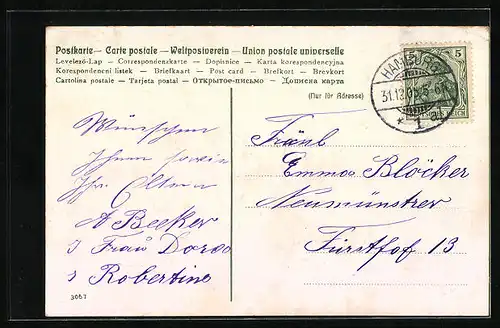 Postkarte — Carte postale — Weltpostverein — Union postale universelle
Levelező-Lap — Correspondenzkarte — Dopisnice — Karta korespondencyjna
Korespondencni listek — Briefkaart — Post card — Brefkort — Brevkort
Cartolina postale — Tarjeta postal — Открытое письмо — Дописна карта
(Nur für Adresse)
5
HAMBURG
31.12.
* 1
Wünschen
Ihnen sowie
Ihr. Eltern
A Becker
Frau Dora
Robertine
3067
Fräul
Emma Blöcker
Neumünster
Fürsthof 13